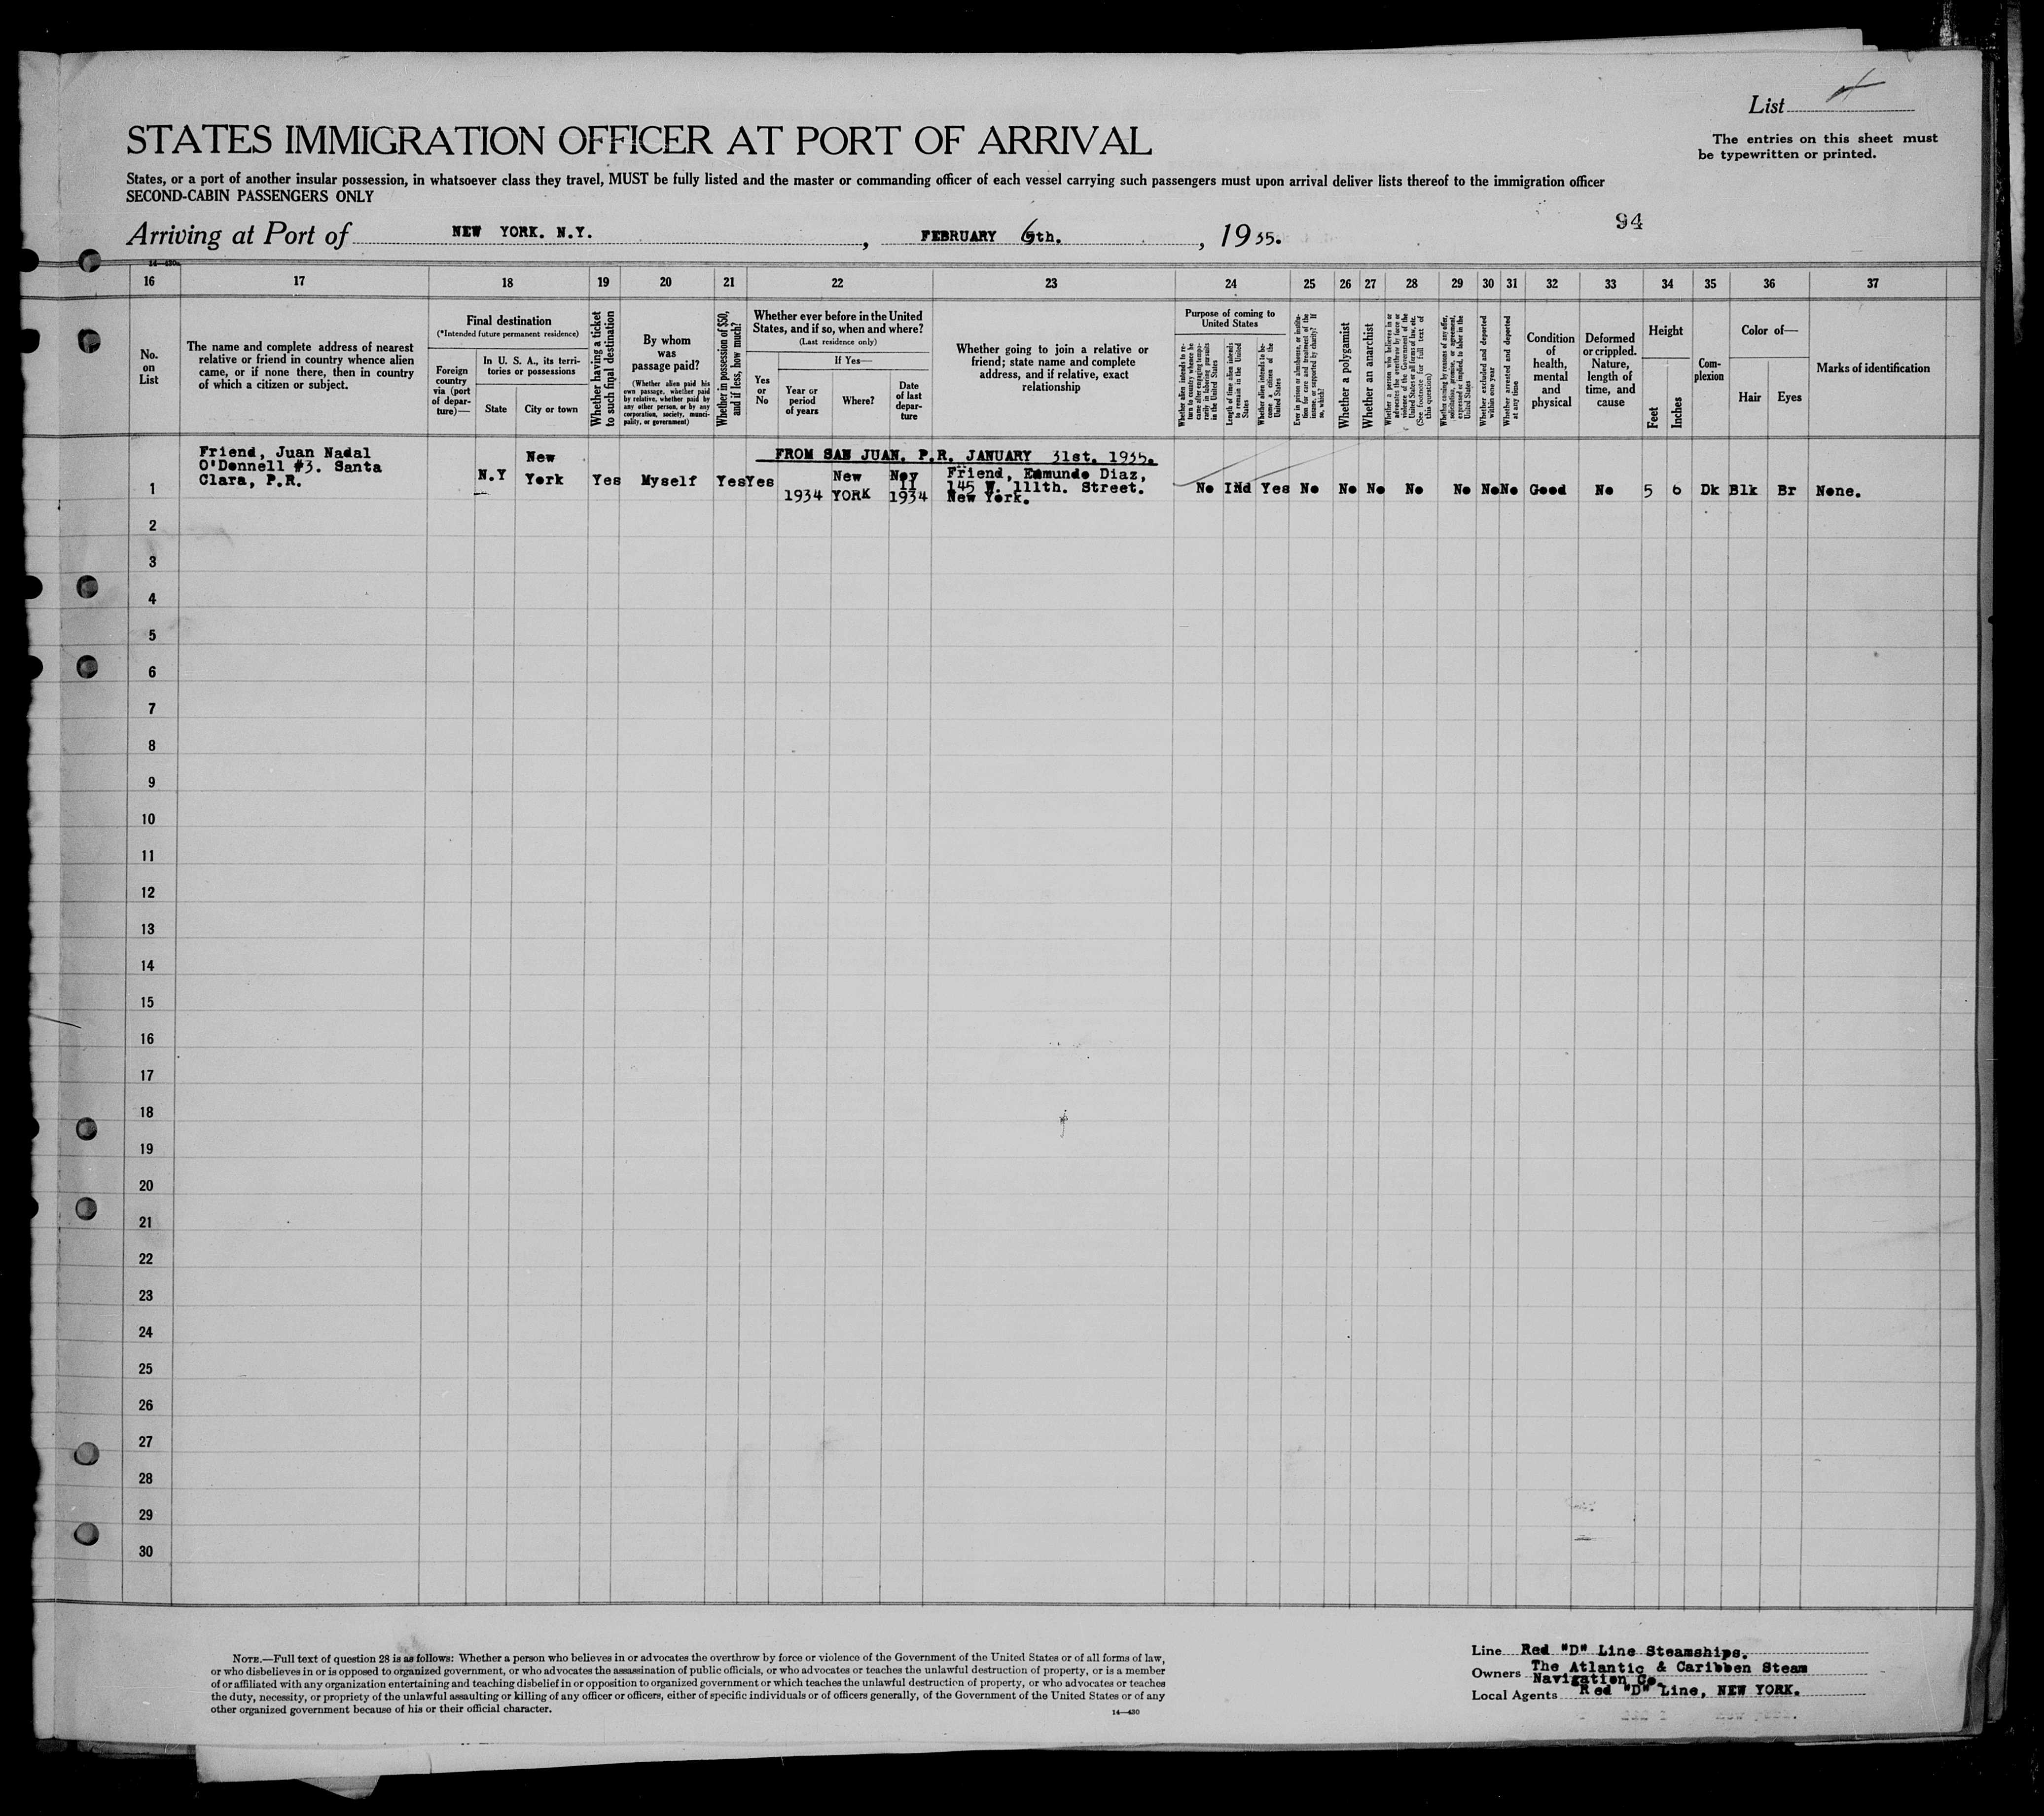 List
STATES IMMIGRATION OFFICER AT PORT OF ARRIVAL
The entries on this sheet must
be typewritten or printed.
States, or a port of another insular possession, in whatsoever class they travel, MUST be fully listed and the master or commanding officer of each vessel carrying such passengers must upon arrival deliver lists thereof to the immigration officer
SECOND-CABIN PASSENGERS ONLY
94
Arriving at Port of NEW YORK. N.Y. , FEBRUARY 6th. , 1935.
14—430
16 17 18 19 20 21 22 23 24 25 26 27 28 29 30 31 32 33 34 35 36 37
No.
on
List
The name and complete address of nearest
relative or friend in country whence alien
came, or if none there, then in country
of which a citizen or subject.
Final destination
(*Intended future permanent residence)
Foreign
country
via (port
of depar-
ture)—
In U. S. A., its terri-
tories or possessions
State
City or town
Whether having a ticket
to such final destination
By whom
was
passage paid?
(Whether alien paid his
own passage, whether paid
by relative, whether paid by
any other person, or by any
corporation, society, munici-
pality, or government)
Whether in possession of $50,
and if less, how much?
Whether ever before in the United
States, and if so, when and where?
(Last residence only)
Yes
or
No
If Yes—
Year or
period
of years
Where?
Date
of last
depar-
ture
Whether going to join a relative or
friend; state name and complete
address, and if relative, exact
relationship
Purpose of coming to
United States
Whether alien intends to re-
turn to country whence he
came after engaging tempo-
rarily in laboring pursuits
in the United States
Length of time alien intends
to remain in the United
States
Whether alien intends to be-
come a citizen of the
United States
Ever in prison or almshouse, or institu-
tion for care and treatment of the
insane, or supported by charity? If
so, which?
Whether a polygamist
Whether an anarchist
Whether a person who believes in or
advocates the overthrow by force or
violence of the Government of the
United States or all forms of law, etc.
(See footnote for full text of
this question)
Whether coming by reasons of any offer,
solicitation, promise, or agreement,
expressed or implied, to labor in the
United States
Whether excluded and deported
within one year
Whether arrested and deported
at any time
Condition
of
health,
mental
and
physical
Deformed
or crippled.
Nature,
length of
time, and
cause
Height
Feet
Inches
Com-
plexion
Color of—
Hair
Eyes
Marks of identification
FROM SAN JUAN. P.R. JANUARY 31st. 1935.
1
Friend, Juan Nadal
O'Donnell #3. Santa
Clara, P.R.
N.Y
New
York
Yes
Myself
Yes
Yes
1934
New
YORK
Nov
11
1934
Friend, Edmundo Diaz,
145 W. 111th. Street.
New York.
No INd Yes No No No No No No No Good No 5 6 Dk Blk Br None.
2
3
4
5
6
7
8
9
10
11
12
13
14
15
16
17
18
19
20
21
22
23
24
25
26
27
28
29
30
NOTE.—Full text of question 28 is as follows: Whether a person who believes in or advocates the overthrow by force or violence of the Government of the United States or of all forms of law,
or who disbelieves in or is opposed to organized government, or who advocates the assassination of public officials, or who advocates or teaches the unlawful destruction of property, or is a member
of or affiliated with any organization entertaining and teaching disbelief in or opposition to organized government or which teaches the unlawful destruction of property, or who advocates or teaches
the duty, necessity, or propriety of the unlawful assaulting or killing of any officer or officers, either of specific individuals or of officers generally, of the Government of the United States or of any
other organized government because of his or their official character.
14—430
Line Red "D" Line Steamships.
Owners The Atlantic & Caribben Steam
Navigation Co.
Local Agents Red "D" Line, NEW YORK.